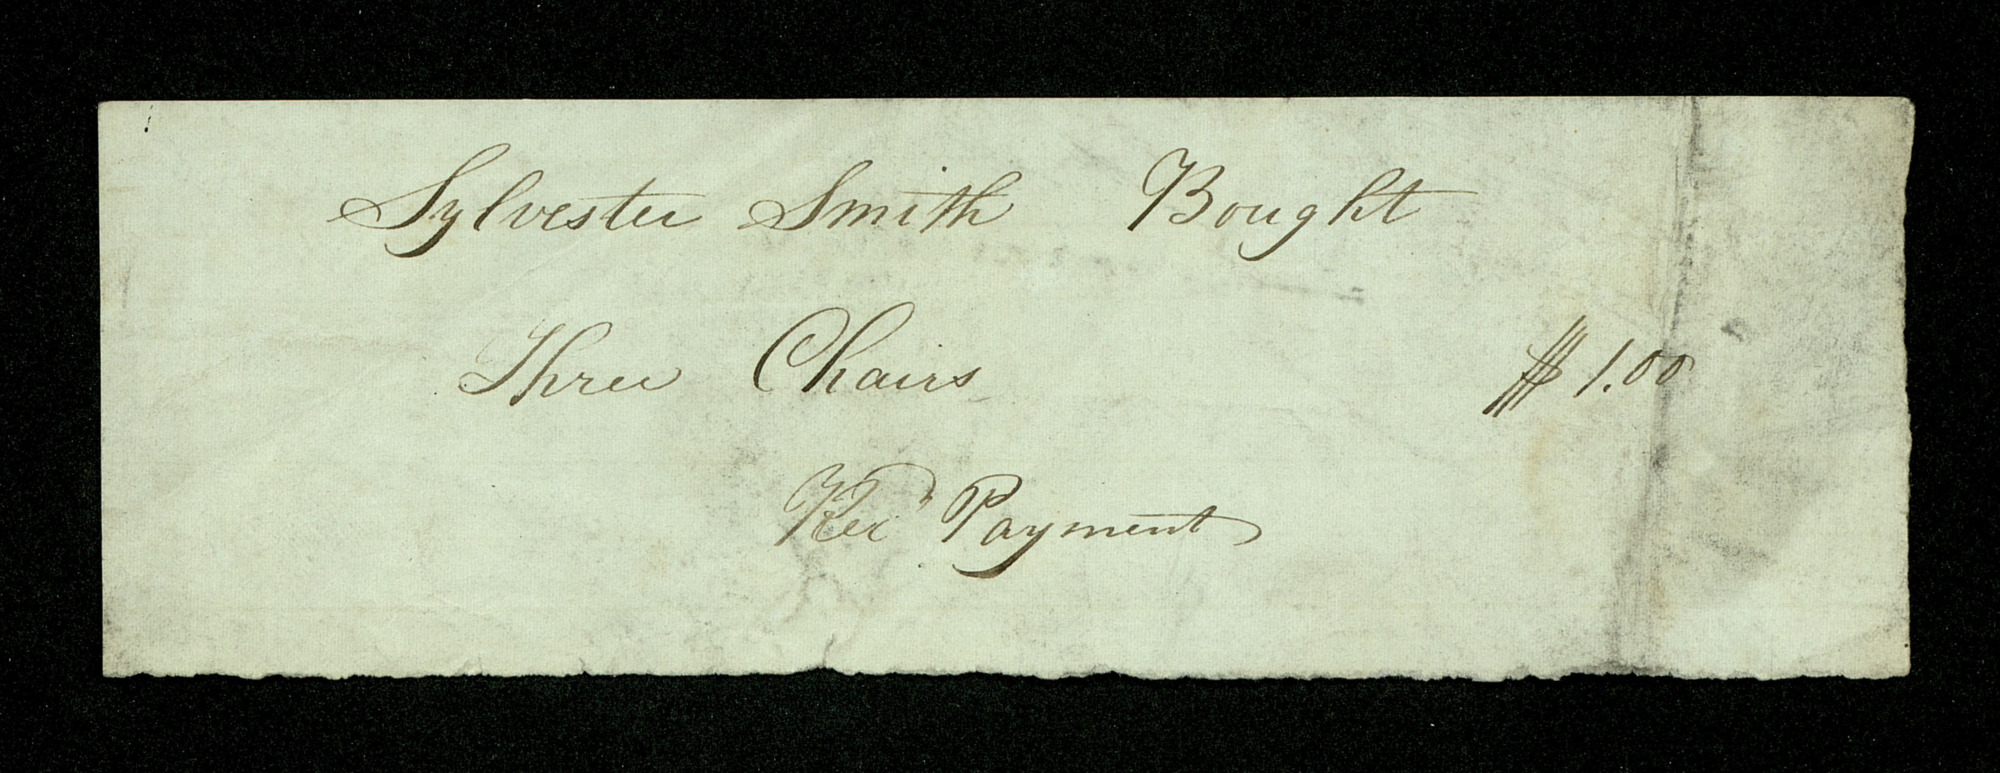 Sylvester Smith Bought
Three Chairs $1.00
Rec'd Payment